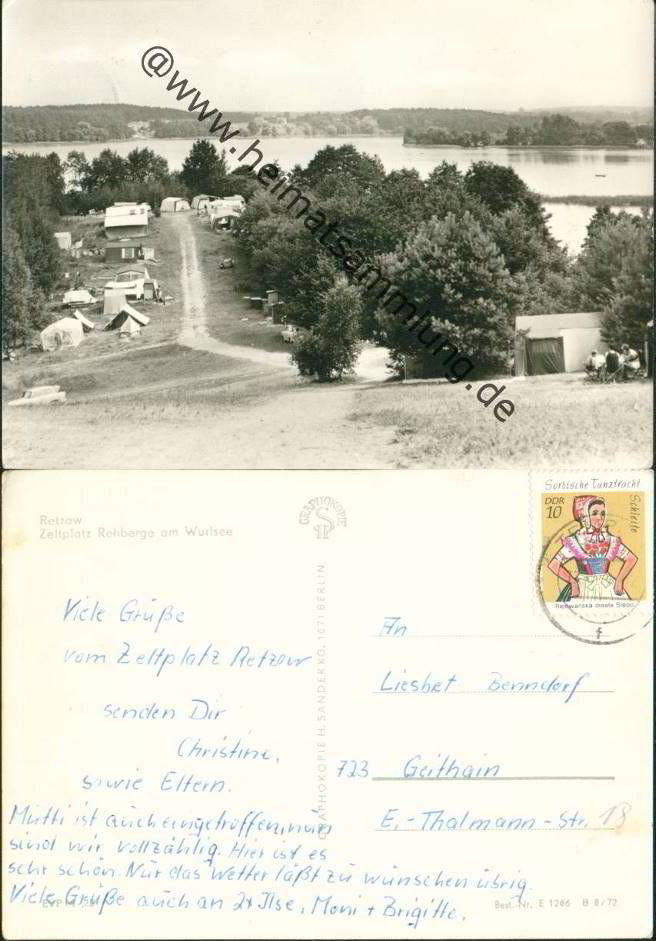 @www.heimatsammlung.de
Retzow
Zeltplatz Rehberge am Wurlsee
GRAPHOKOPIE
Sorbische Tanztracht
Schleife
DDR
10
Viele Grüße
vom Zeltplatz Retzow
senden Dir
Christine,
sowie Eltern.
Mutti ist auch eingetroffen, nun
sind wir vollzählig. Hier ist es
sehr schön. Nur das Wetter läßt zu wünschen übrig.
Viele Grüße auch an Ilse, Moni + Brigitte.
GRAPHOKOPIE H. SANDER KG, 1071 BERLIN
An
Liesbet Benndorf
723 Geithain
E.-Thälmann-Str. 18
Best.-Nr. E 1266 B 8/72